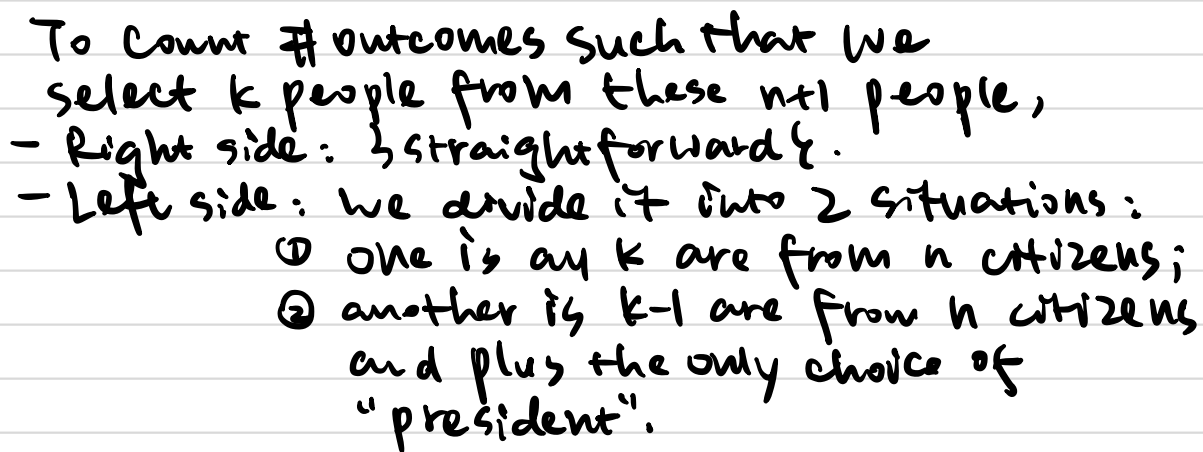 To count # outcomes such that we
select k people from these n+1 people,
- Right side: } straightforward {.
- Left side: we divide it into 2 situations:
① one is all k are from n citizens;
② another is k-1 are from n citizens
and plus the only choice of
"president".